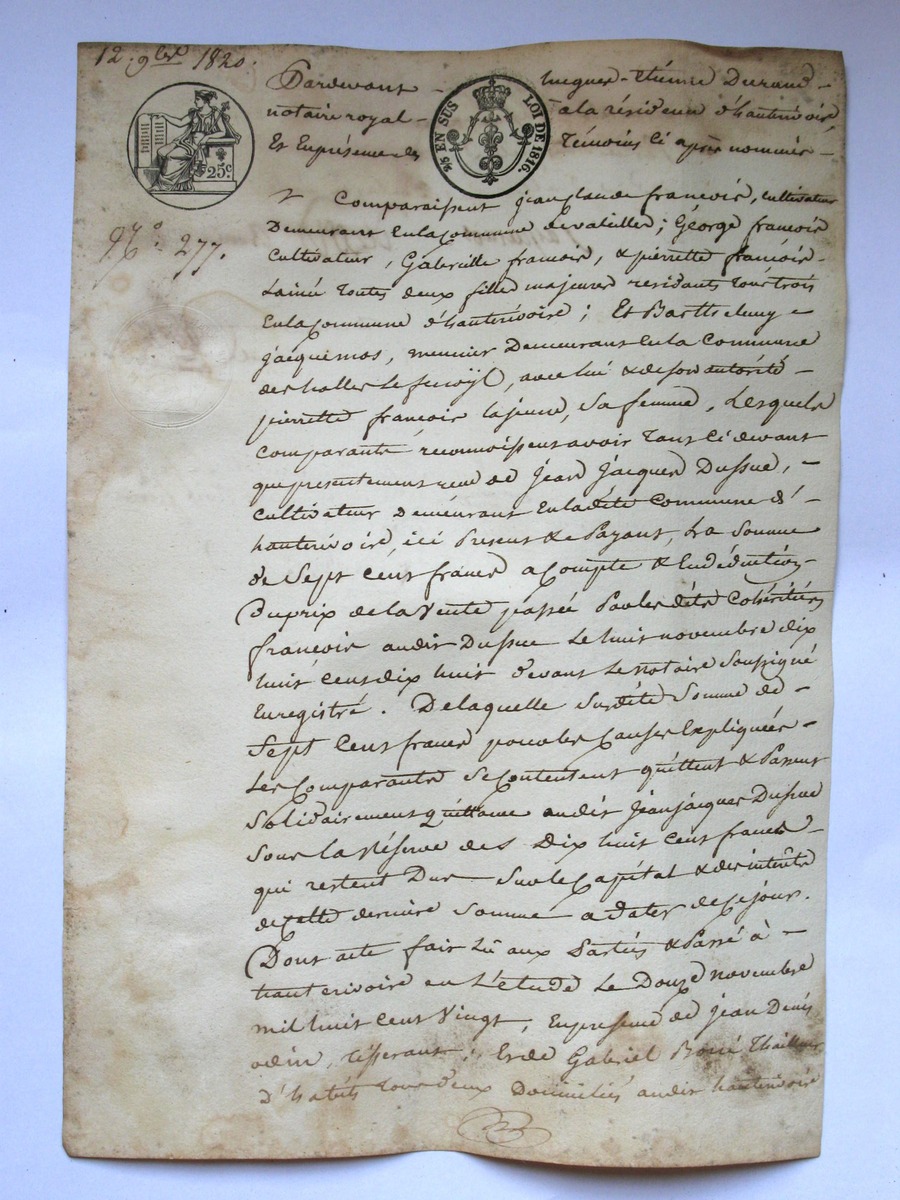 12. 9bre 1820.
Pardevant hugues-Etienne Durand
notaire royal à la résidence d'hauterivoire,
Et En présence des Témoins ci après nommés
25c
2/5 EN SUS LOI DE 1816.
N°. 277.
Comparaissent jean claude françois, cultivateur
Demeurant En la Commune de vatille; George françois
Cultivateur, Gabrielle françois, & pierrette françois
Lainé toutes deux filles majeures residants tous trois
En la Commune d'hauterivoire; Et Barthelemy
jacquemos, meunier Demeurant En la Commune
des halles le fenoÿl, avec lui & de son autorité
pierrette françois lajeune, Sa femme, Lesquels
Comparants reconnoissent avoir tant ci devant
que presentement reçu de jean jacques Dussuc,
Cultivateur demeurant En ladite Commune d'
hauterivoire, ici Present & Payant, La Somme
de Sept Cent francs a Compte & En déduction
Du prix de la Vente passée Par les dits Cohéritiers
françois audit Dussuc Le huit novembre dix
huit cent dix huit devant Le notaire Soussigné
Enregistré. De laquelle Susdite Somme de
Sept Cent francs pour les Causes Expliquées
Les Comparants Se Contentent quittent & Passent
Solidairement Quittance audit Jean jacques Dussuc
Sous la Réserve des Dix huit Cent francs
qui restent Dus Sur le Capital & des intérêts
de Cette dernière Somme a dater de Ce jour.
Dont acte fait Lû aux Parties & Passé à
hauterivoire en L'étude Le Douze novembre
mil huit Cent Vingt, En présence de jean Denis
odin, tisserant, Et de Gabriel Thailleur
D'habits tous deux Domiciliés audit hauterivoire